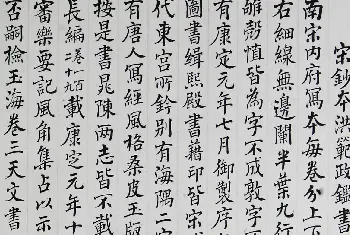 宋鈔本洪範政鑑書
南宋内府寫本每卷分上下
右細線無邊闌半葉九行
雊慎皆為字不成敦字
有康定元年七月御製序
圖書緝熙殿書籍印皆宋
代東宮所鈐別有海隅二
有唐人寫經風格桑皮玉版
按是書晁陳两志皆不載
長編卷一百二十九載康定元年十
審樂要記風角集占以示
否嗣檢玉海卷三天文書